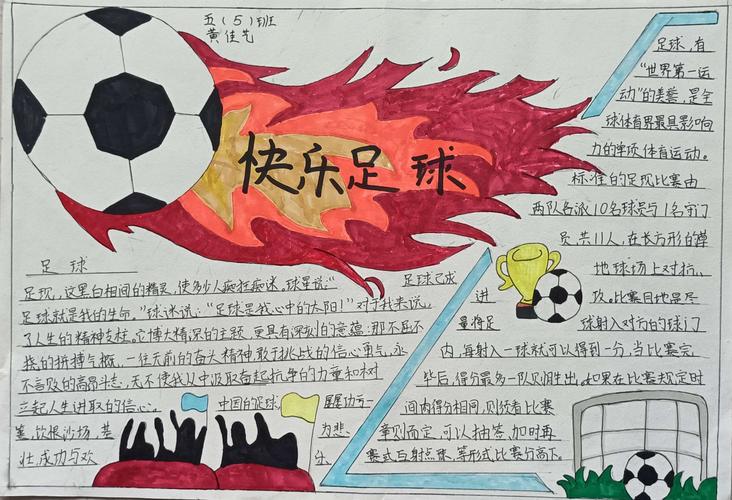 五(5)班
黄佳艺
快乐足球
足球
足现，这里白相间的精灵，使多少人痴狂痴迷，球星说："
足球就是我的生命。"球迷说："足球是我心中的太阳！"对于我来说，足球已成
了人生的精神支柱。它博大精深的主题，更具有深刻的意蕴：那不屈不
挠的拼搏气概，一往无前的奋斗精神敢于挑战的信心勇气，永
不言败的高昂斗志，无不使我从中汲取奋起抗争的力量和树
立起人生进取的信心。中国的足球，屡屡功亏一
篑，饮恨沙场，悲为悲
壮，成功与欢乐，
足球，有
"世界第一运
动"的美誉，是全
球体育界最具影响
力的单项体育运动。
标准的足现比赛由
两队各派10名球员与1名守门
员，共11人，在长方形的草
地球场上对抗、
进攻。比赛目地是尽
量将足球射入对方的球门
内，每射入一球就可以得到一分，当比赛完
毕后，得分最多一队则胜出。如果在比赛规定时
间内得分相同，则须看比赛
章则而定，可以抽签、加时再
赛或互射点球，等形式比赛分高下。